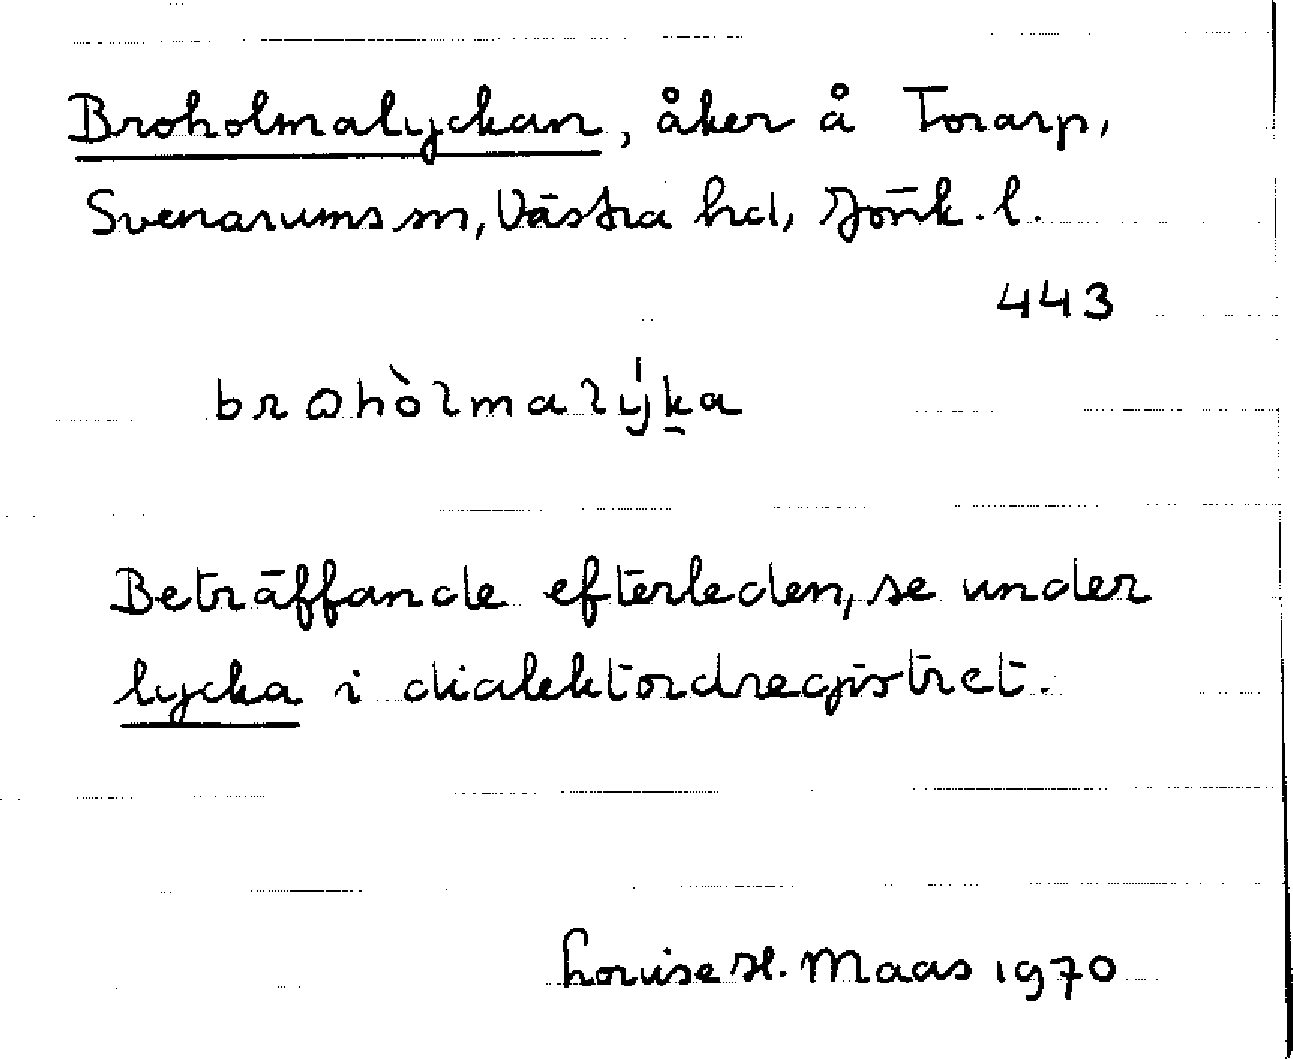 Broholmalyckan, åker å Torarp,
Svenarums sn, Västra hd, Jönk. l.
443
brωhòlmalýka
Beträffande efterleden, se under
lycka i dialektordregistret.
Louise H. Maas 1970